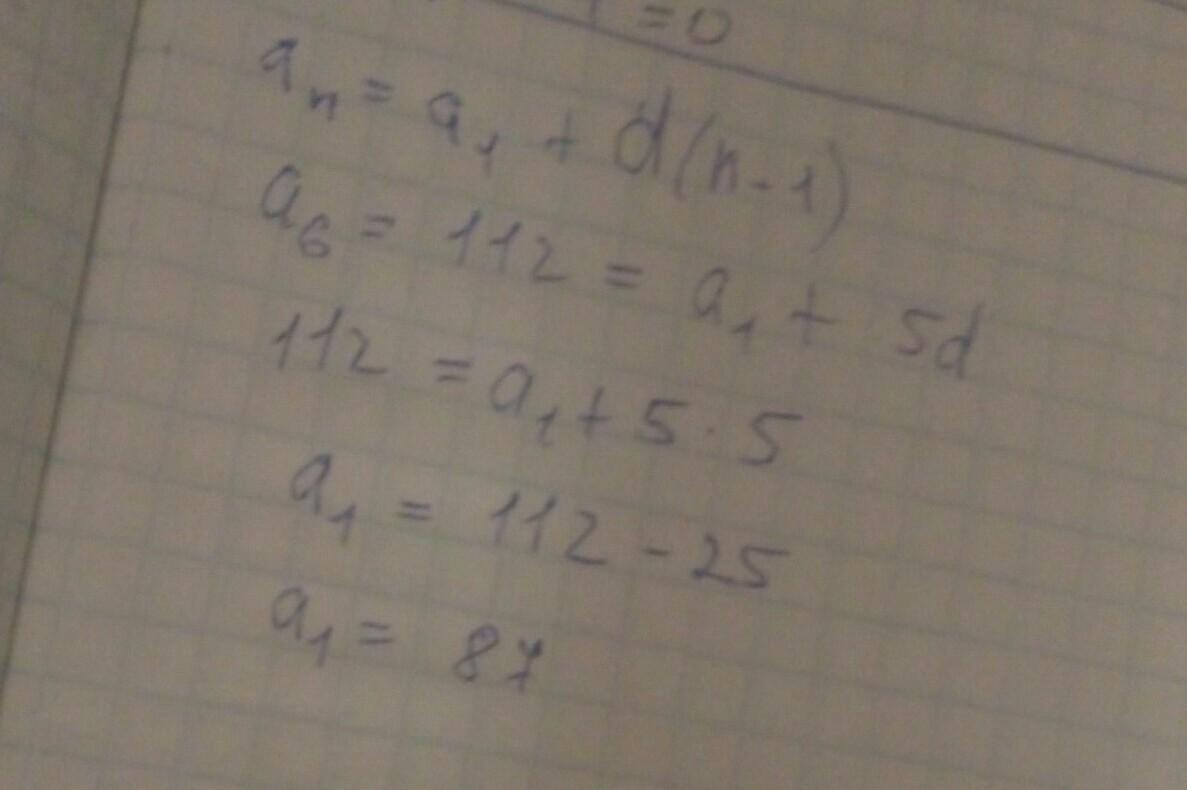 =0
aₙ = a₁ + d(n-1)
a₆ = 112 = a₁ + 5d
112 = a₁ + 5·5
a₁ = 112 - 25
a₁ = 87